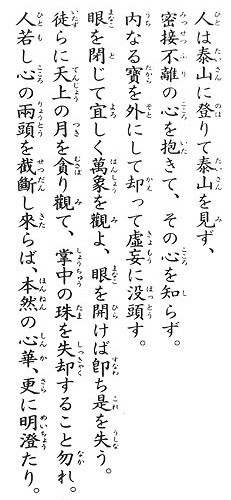 人は泰山に登りて泰山を見ず、
密接不離の心を抱きて、その心を知らず。
内なる寶を外にして却って虚妄に没頭す。
眼を閉じて宜しく萬象を觀よ、眼を開けば卽ち是を失う。
徒らに天上の月を貪り觀て、掌中の珠を失却すること勿れ。
人若し心の兩頭を截斷し來らば、本然の心華、更に明澄たり。